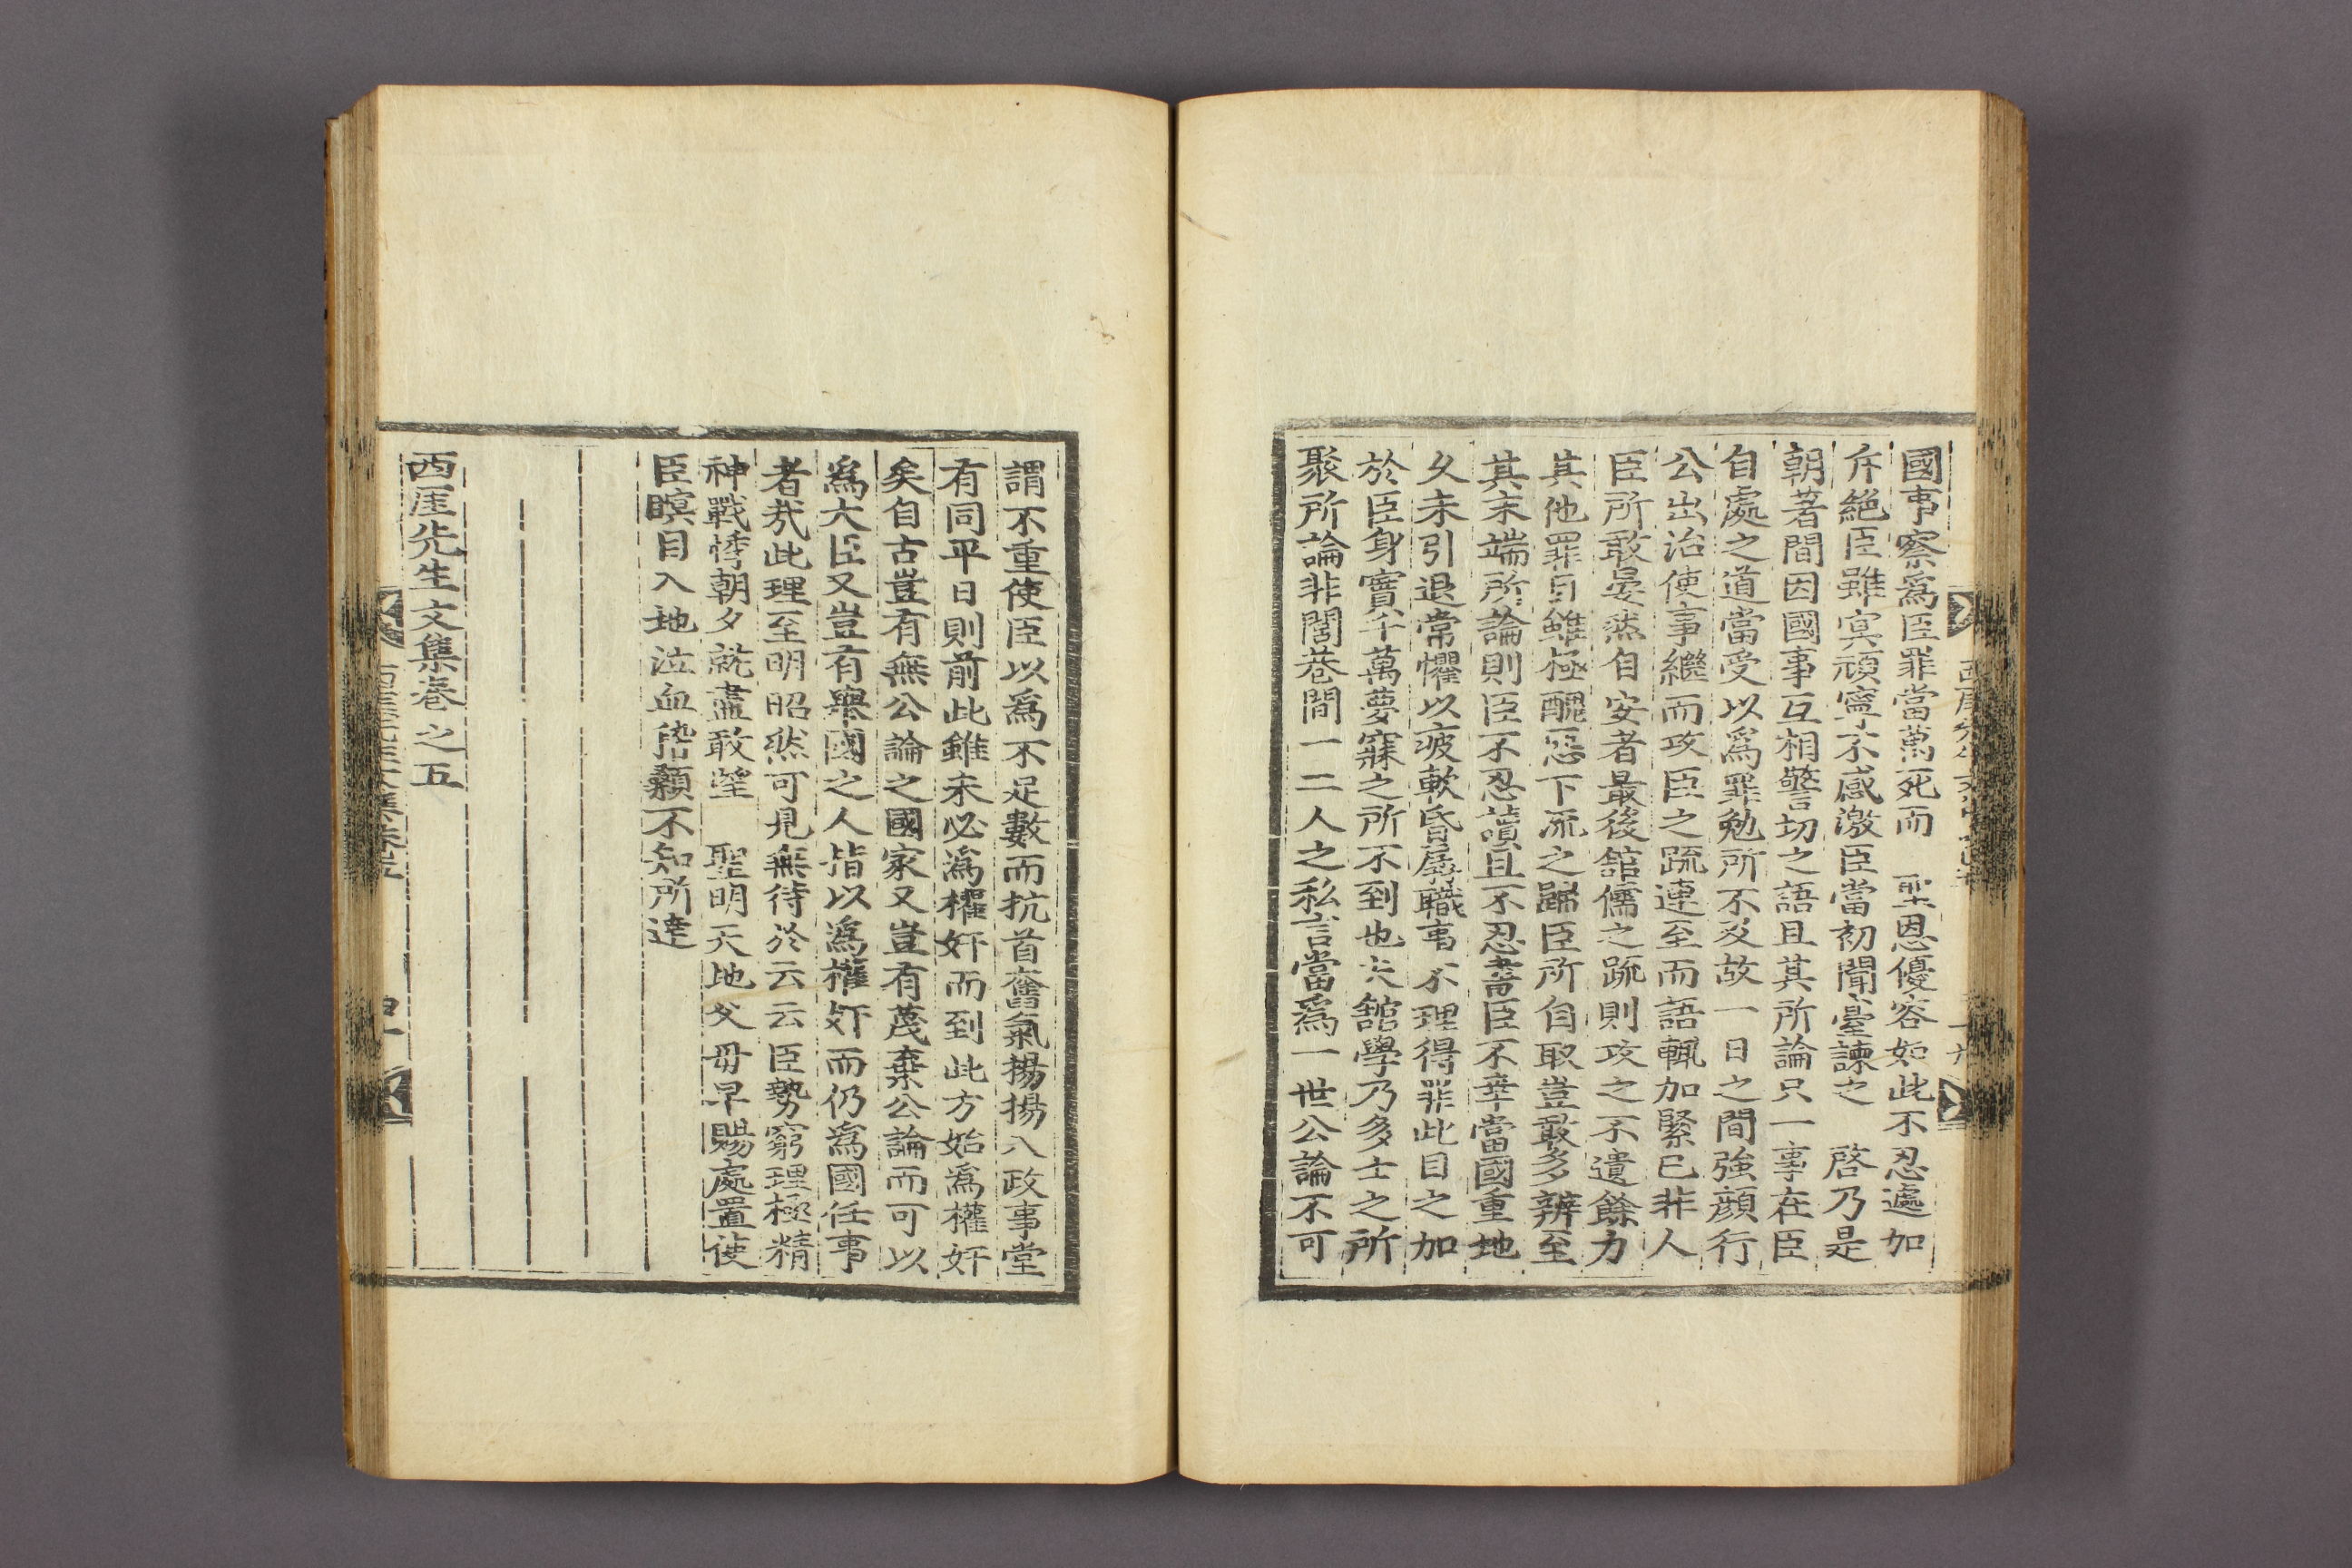 國事察爲臣罪當萬死而　聖恩優容如此不忍遽加
斥絶臣雖冥頑寧不感激臣當初聞臺諫之　啓乃是
朝著間因國事互相警切之語且其所論只一事在臣
自處之道當受以爲罪勉所不及故一日之間強顔行
公出治使事繼而攻臣之䟽連至而語輒加緊已非人
臣所敢晏然自安者最後舘儒之䟽則攻之不遺餘力
其他罪目雖極醜惡下流之歸臣所自取豈敢多辨至
其末端所論則臣不忍讀且不忍書臣不幸當國重地
久未引退常懼以疲軟昏孱職事不理得罪此目之加
於臣身實千萬夢寐之所不到也夫舘學乃多士之所
聚所論非閭巷間一二人之私言當爲一世公論不可
謂不重使臣以爲不足數而抗首奮氣揚揚入政事堂
有同平日則前此雖未必爲權奸而到此方始爲權奸
矣自古豈有無公論之國家又豈有蔑棄公論而可以
爲大臣又豈有舉國之人指以爲權奸而仍爲國任事
者㢤此理至明昭然可見無待於云云臣勢窮理極精
神戰悸朝夕就盡敢望　聖明天地父母早賜處置使
臣瞑目入地泣血𥡴顙不知所達
西厓先生文集卷之五